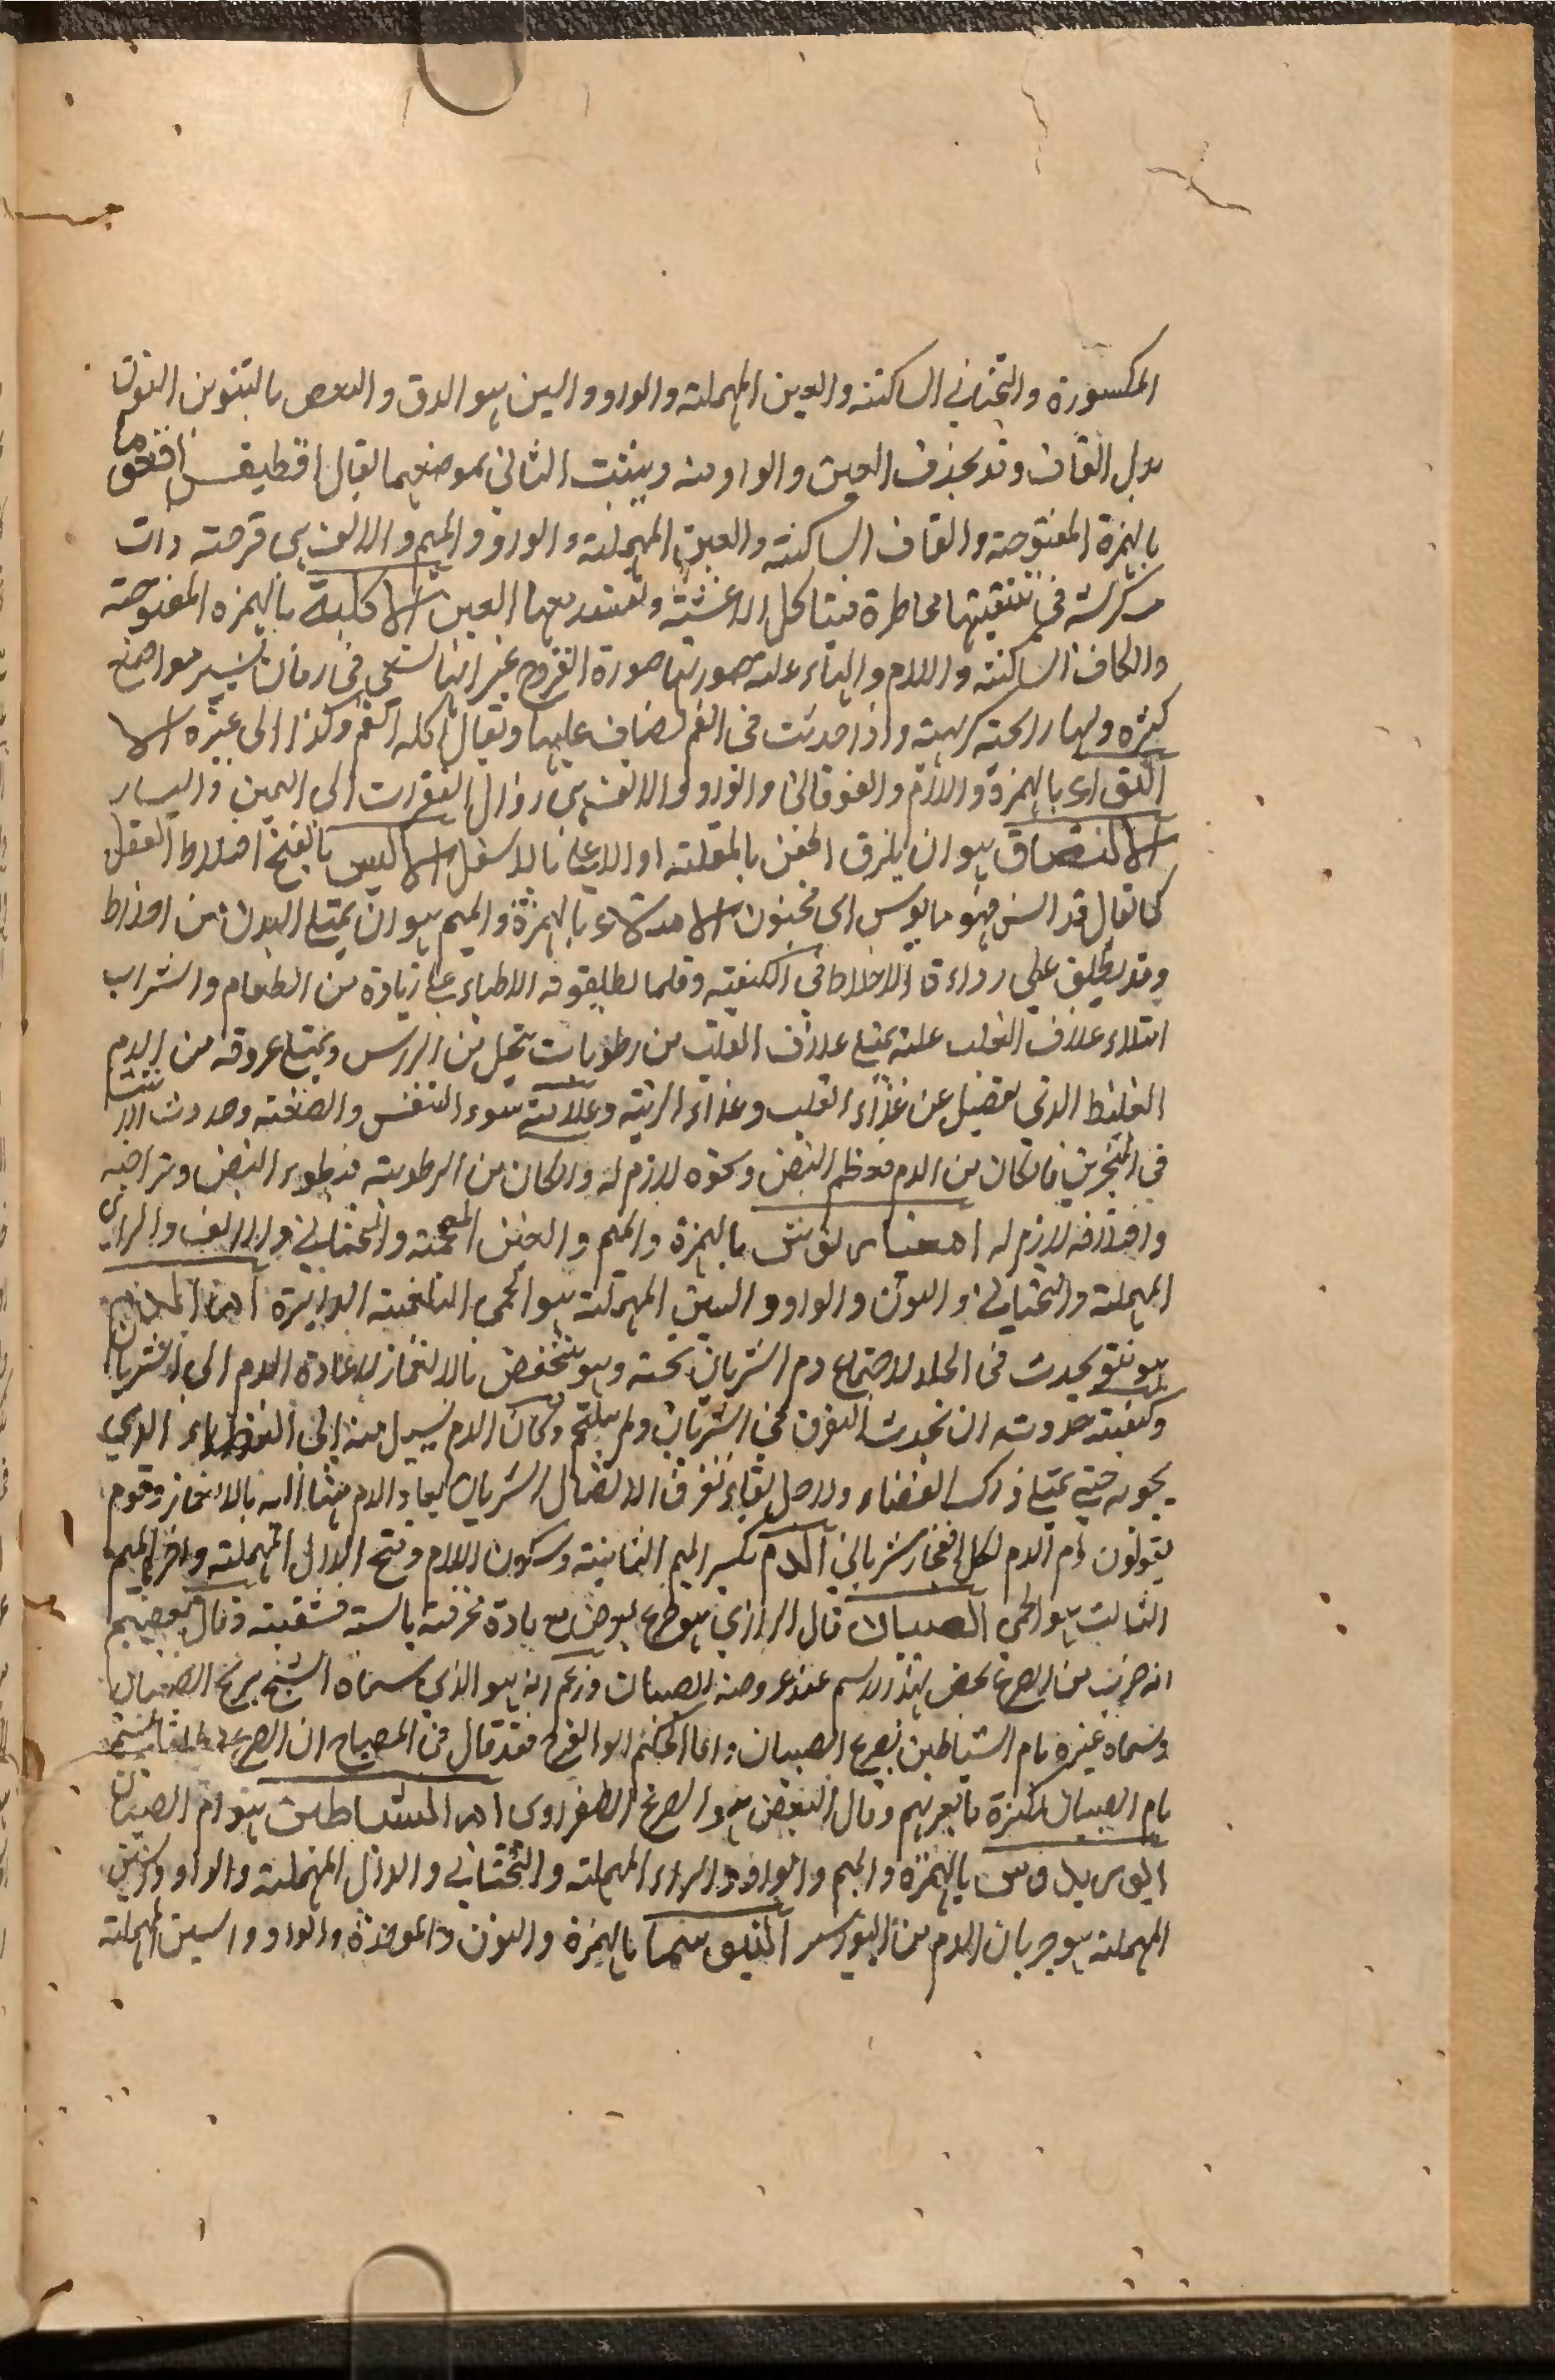 المكسورة والتحتاني الساكنة والعين المهملة والواو والسين هو الدق والبعض بالتنوين النون
بدل القاف وقد يحذف العين والواو منه ويثبت الثاني بموضعهما يقال اقطيقس اقعوما
بالهمزة المفتوحة والقاف الساكنة والعين المهملة والواو والميم والالف هي قرحة ذات
في تنقيتها مخاطرة فيتاكل الاغشية وتفسد معها العين الاكلة بالهمزة المفتوحة
والكاف الساكنة واللام والتاء علة صورتها صورة القروح غير انها تسعى في زمان يسير مواضع
كثيرة ولها رائحة كريهة واذا حدثت في الفم تضاف عليها ويقال اكلة الفم وكذا الى غيره الا
لتواء بالهمزة واللام والفوقاني والواو والالف هي زوال الفقرات الى اليمين واليسار
الالتصاق هو ان يلزق الجفن بالمقلة او الاعلى بالاسفل الالس بالفتح اختلاط العقل
كما يقال قد الس فهو مالوس اى مجنون الامتلاء بالهمزة والميم هو ان يمتلئ البدن من اخلاط
وقد يطلق على رداءة الاخلاط في الكيفية وقلما يطلقونه الاطباء على زيادة من الطعام والشراب
امتلاء غلاف القلب علة يمتلئ غلاف القلب من رطوبات تتحلب من الرأس ويمتلئ عروقه من الدم
الغليظ الذي يفضل عن غذاء القلب وغذاء الرية وعلامته سوء التنفس والصفنة وحدوث
في المنخرين فان كان من الدم فعظم النبض ونحوه لازم له وان كان من الرطوبة فبطوء النبض وتراخيه
واختلافه لازم له بالهمزة والميم والغين المعجمة والتحتاني والالف والراء
المهملة والتحتاني والنون والواو والسين المهملة هو الحمى البلغمية الدايرة ام الدم
هو نتو يحدث في الجلد لاجتماع دم الشريان تحته وهو ينخفض بالانغماز لاعادة الدم الى الشريان
وكيفية حدوثه ان يحدث التفرق في الشريان ولم يلتحم وكان الدم يسيل منه الى الفضاء الذي
يحويه حتى يمتلئ ذلك الفضاء ولاجل بقاء تفرق الاتصال الشريان يعاود الدم منها اليه بالانغماز وقوم
يقولون ام الدم لكل انفجار شرياني ام ملدم بكسر الميم الثانية وسكون اللام وفتح الدال المهملة واخر الميم
الثالث هو الحمى ام الصبيان قال الرازي هو صرع يعرض مع مادة محرقة يابسة قشفية وقال بعضهم
انه ضرب من الصرع يخص بهذا الاسم عند عروضه للصبيان وزعم انه هو الذي سماه الشيخ بريح الصبيان
وسماه غيره بام الشياطين بصرع الصبيان واما الحكيم ابو الفرج فقد قال في المصباح ان الصرع مطلقا يسمى
بام الصبيان لكثرة ما يعتريهم وقال البعض هو الصرع الصفراوي ام الشياطين هو ام الصبيان
بالهمزة والميم والواو والراء المهملة والتحتاني والدال المهملة والواو والسين
المهملة هو جريان الدم من البواسير انبوسما بالهمزة والنون والموحدة والواو والسين المهملة